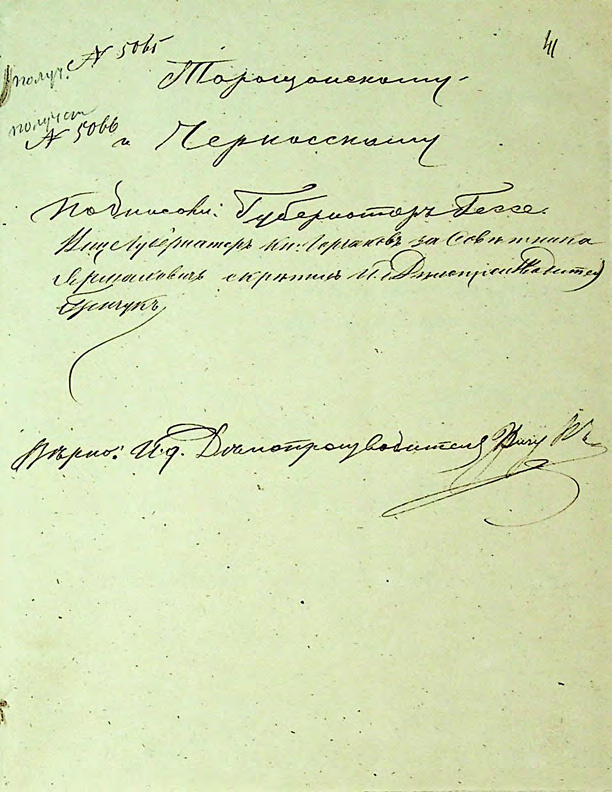 41
получ. № 5065
Торощанскому
получет № 5066
и Черкасскому
Подписали: Губернаторъ Гессе.
Вице Губернаторъ кн: Горчаковъ за Совѣтника
скрѣпилъ И. д. Дѣлопроизводителя
Гричукъ
Вѣрно: И. д. Дѣлопроизводителя